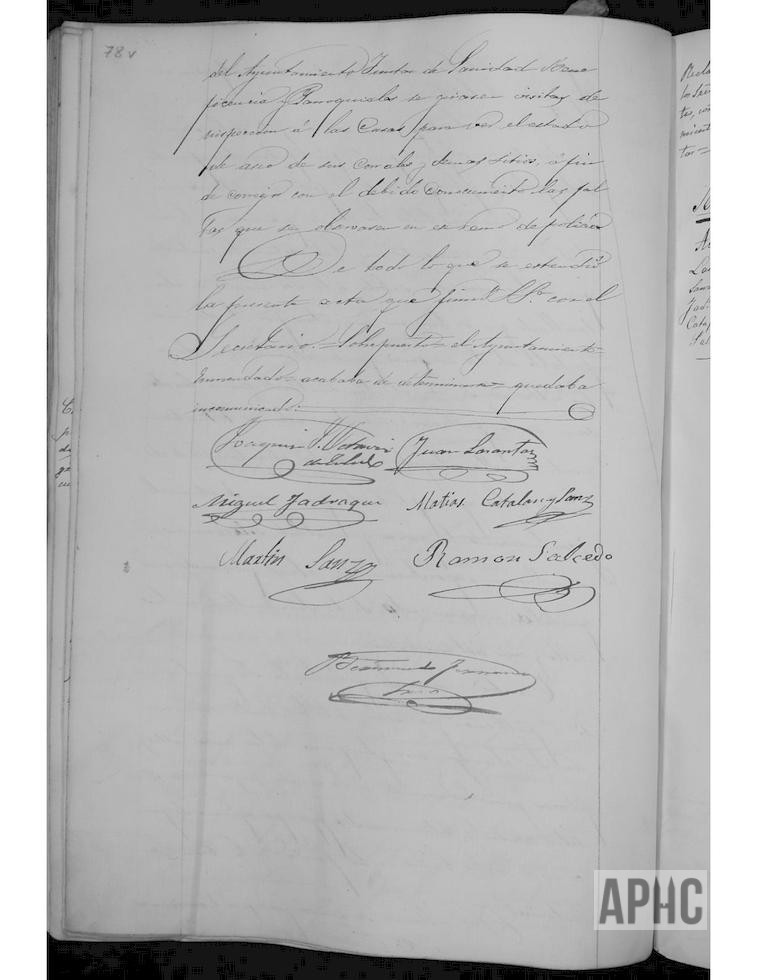 78 v
del Ayuntamiento Juntas de Sanidad Bene
ficencia y Parroquiales se girasen visitas de
inspeccion á las Casas para ver el estado
de aseo de sus corrales y demas sitios, á fin
de corregir con el debido conocimiento las fal
tas que se observasen en este ramo de policia
De todo lo que se estendió
la presente acta que firman con el
Secretario.=Sobrepuesto=el Ayuntamiento=
Enmendado=acababa de determinarse=quedaba
incomunicado:
Joaquin
Juan Lorente
Miguel Jadraque
Matias Catalan y Sanz
Martin Sanz
Ramon Salcedo
Bermudo
APHC